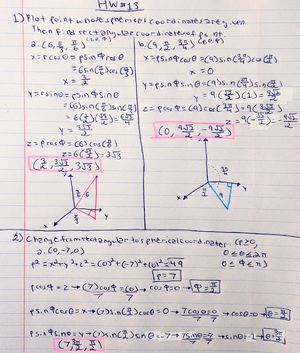 HW#13
1) Plot point whose spherical coordinates are given.
Then find rectangular coordinates of point.
a. (6, π/3, π/6)
x = rcosθ = ρsinφcosθ
= 6sin(π/6)cos(π/3)
x = 3/2
y = rsinθ = ρsinφsinθ
= (6)sin(π/6)sin(π/3)
= 6(1/2)(√3/2) = 6√3/4
y = 3√3/2
z = ρcosφ = (6)cos(π/6)
z = 6(√3/2) = 3√3
(3/2, 3√3/2, 3√3)
b. (9, π/2, 3π/4)
x = ρsinφcosθ = (9)sin(3π/4)cos(π/2)
x = 0
y = ρsinφsinθ = (9)sin(3π/4)sin(π/2)
y = 9(√2/2)(1) = 9√2/2
z = ρcosφ = (9)cos(3π/4)
z = 9(-√2/2) = -9√2/2
(0, 9√2/2, -9√2/2)
z
6
y
x
π/3
z
3π/4
9
y
x
2) Change from rectangular to spherical coordinates. (ρ≥0,
0≤θ≤2π
0≤φ≤π)
a. (0,-7,0)
ρ² = x²+y²+z² = (0)²+(-7)²+(0)² = √49
ρ = 7
ρcosφ = z → (7)cosφ/7 = (0)/7 → cosφ = 0 → φ = π/2
ρsinφcosθ = x → (7)sin(π/2)cosθ = 0 → 7cosθ/7 = 0/7 → cosθ = 0 → θ = π/2
ρsinφsinθ = y → (7)sin(π/2)sinθ = -7 → 7sinθ/7 = -7/7 → sinθ = -1 → θ = 3π/2
(7, 3π/2, π/2)